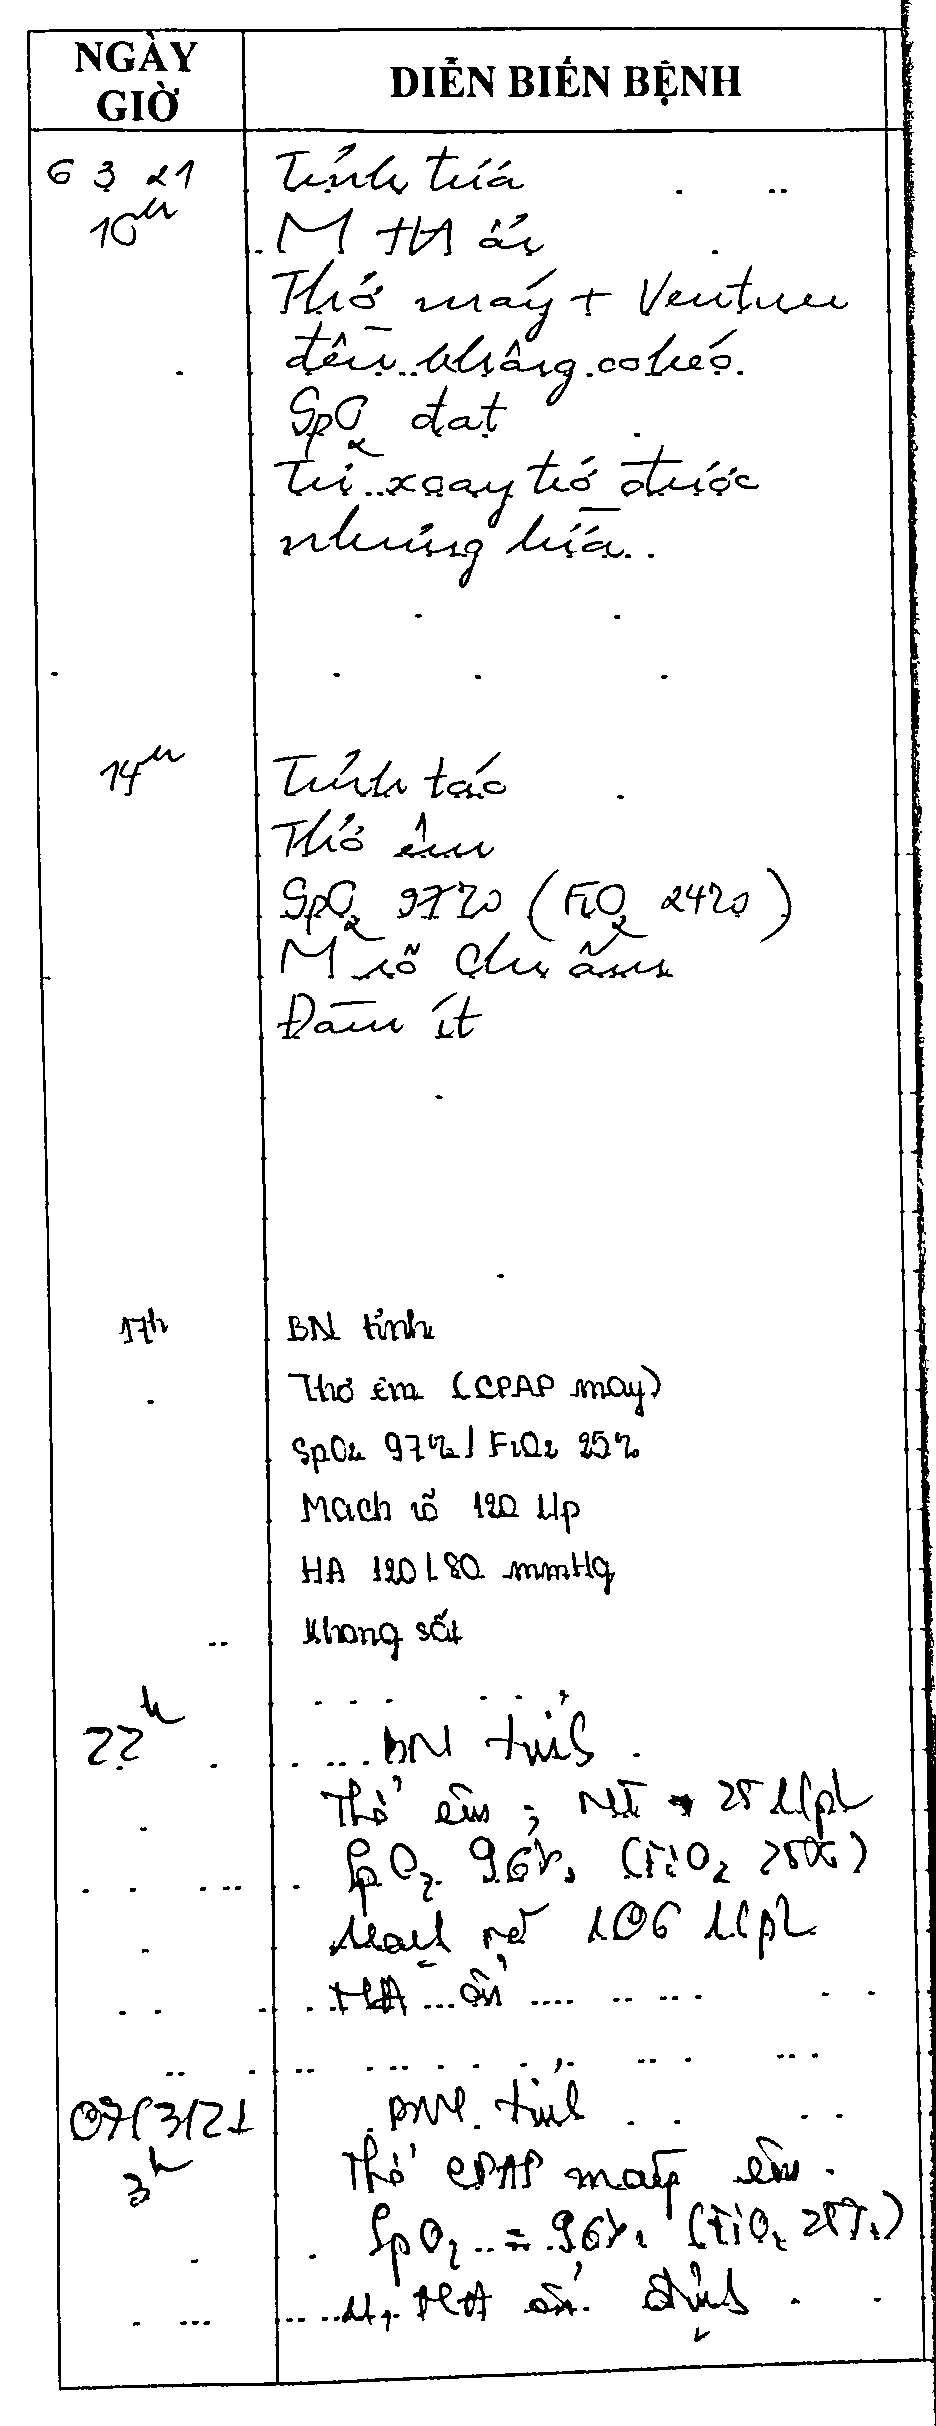 NGÀY GIỜ
DIỄN BIẾN BỆNH
6 3 21
10h
Tỉnh táo
M HA ổn
Thở máy + Ventun
đều không co kéo.
SpO2 đạt
Tự xoay trở được
nhưng
14h
Tỉnh táo
Thở êm
SpO2 97% (FiO2 24%)
M rõ Chi ấm
Đàm ít
17h
BN tỉnh
Thở êm (CPAP máy)
SpO2 97% / FiO2 25%
Mạch rõ 120 l/p
HA 120/80 mmHg
Không sốt
22h
BN tỉnh
Thở êm ; NT 25 l/ph
SpO2 96% (FiO2 25%)
Mạch rõ 106 l/ph
HA ổn
07/3/21
3h
BN tỉnh
Thở CPAP máy êm
SpO2 = 96% (FiO2 25%)
M, HA ổn định